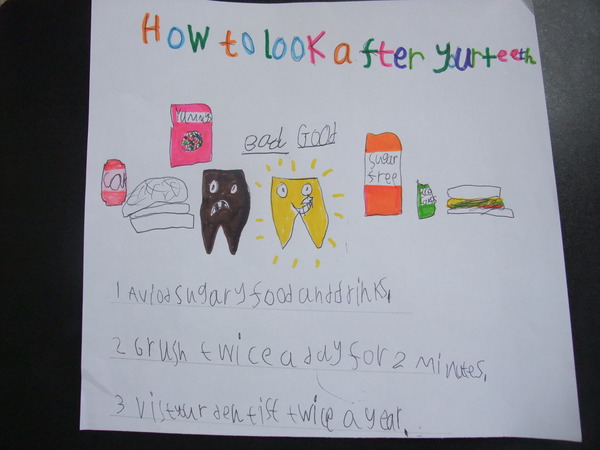 How to look after your teeth
Yummys
Bad Good
sugar
free
1 Aviod sugary food and drinks.
2 Brush twice a day for 2 minutes.
3 Visit your dentist twice a year.